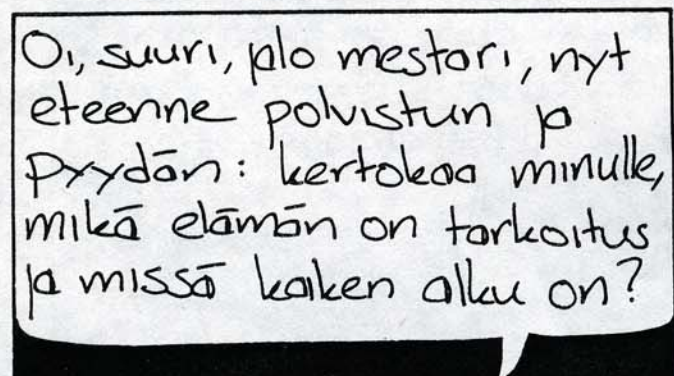 Oi, suuri, jalo mestari, nyt
eteenne polvistun ja
pyydän: kertokaa minulle,
mikä elämän on tarkoitus
ja missä kaiken alku on?